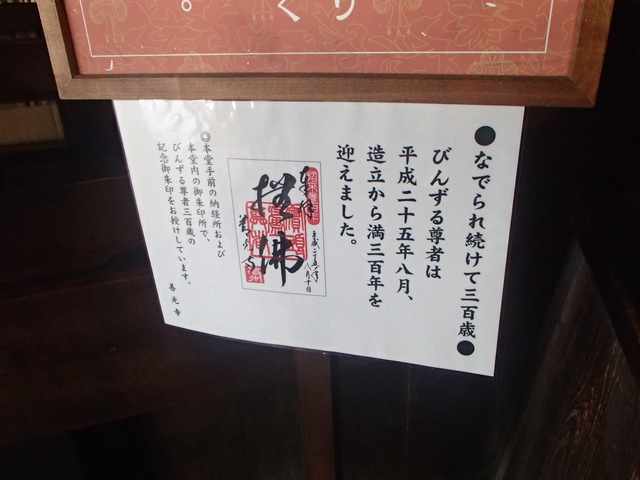 くり。
●なでられ続けて三百歳●
びんずる尊者は
平成二十五年八月、
造立から満三百年を
迎えました。
奉拝
撫佛
善光寺
平成二十五年
八月十日
◎本堂手前の納経所および
本堂内の御朱印所で、
びんずる尊者三百歳の
記念御朱印をお授けしています。
善光寺